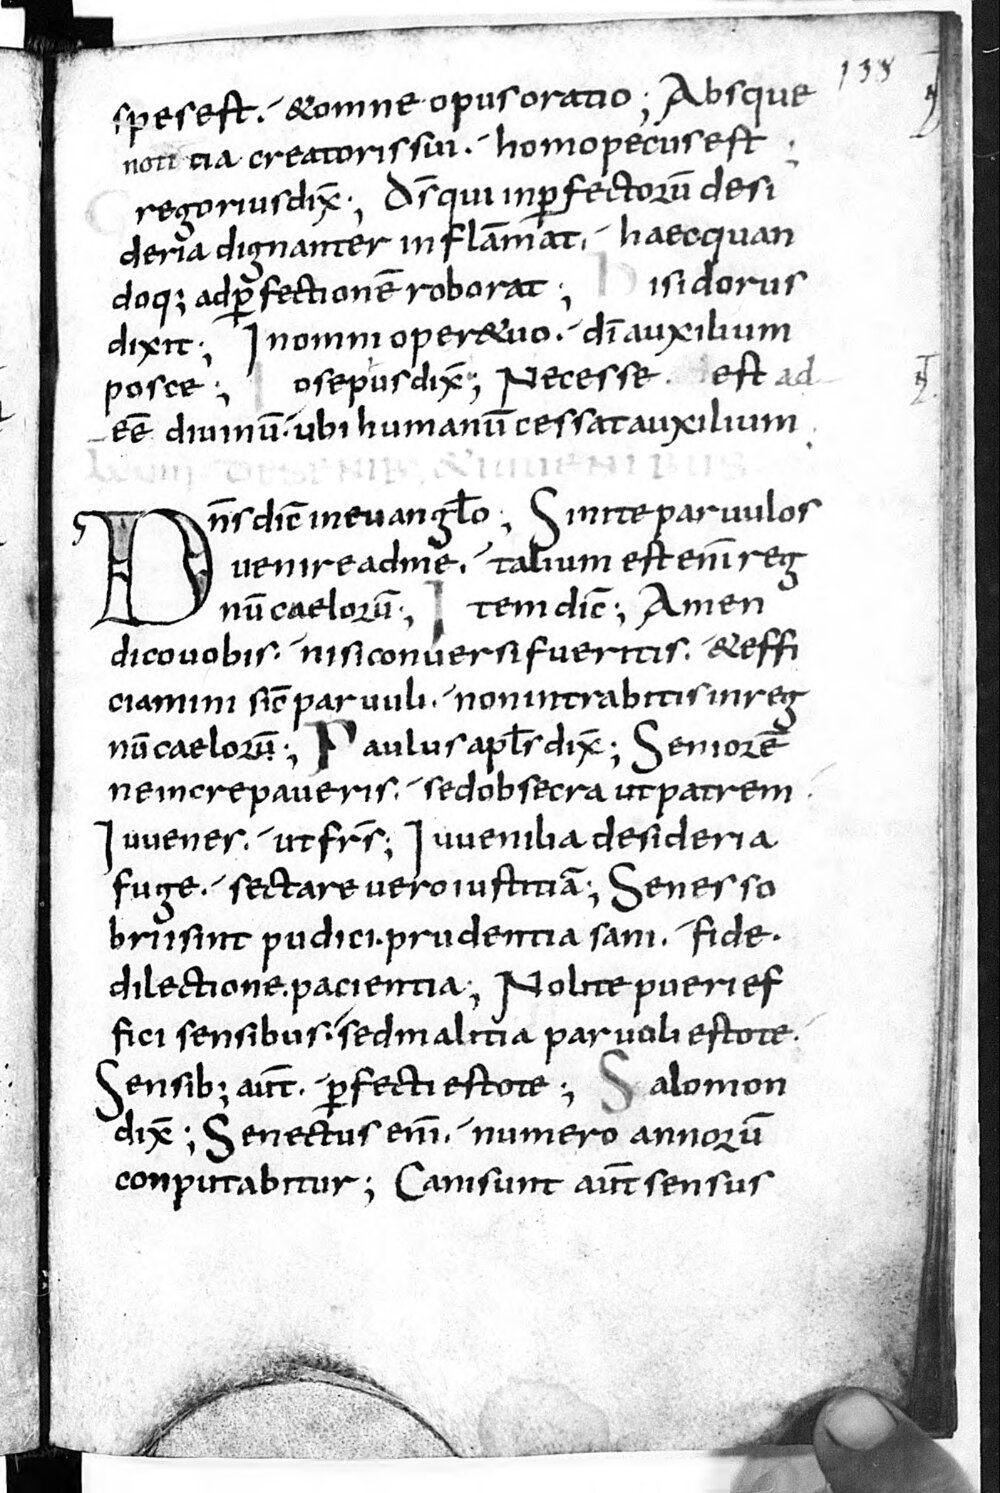 138
spes est. &omne opus oratio; Absque
notitia creatoris sui. homo pecus est;
Gregorius dix̄; Ds̄ qui inꝑfectorū desi
deria dignanter inflāmat. haec quan
doq; adꝑfectionē roborat; hisidorus
dixit; In omni oper& uo. dī auxilium
posce; Iosepus dix̄; Necesse est ad
eē diuinū. ubi humanū cessat auxilium.
DE SENIB; &IUUENIBUS
Dn̄s dic̄ in euangl̄o; Sinite paruulos
uenire ad me. talium est enī reg
nū caelorū; Item dic̄; Amen
dico uobis. nisi conuersi fueritis. &effi
ciamini sic̄ paruuli. non intrabitis in reg
nū caelorū; Paulus apl̄s dix̄; Seniorē
ne increpaueris. sed obsecra ut patrem
Iuuenes. ut fr̄s; Iuuenilia desideria
fuge. sectare uero iustitiā; Senes so
brii sint pudici. prudentia sani. fide.
dilectione. pacientia; Nolite pueri ef
fici sensibus. sed malitia paruuli estote.
Sensib; aūt. ꝑfecti estote; Salomon
dix̄; Senectus enī. numero annorū
conputabitur; Cani sunt aūt sensus